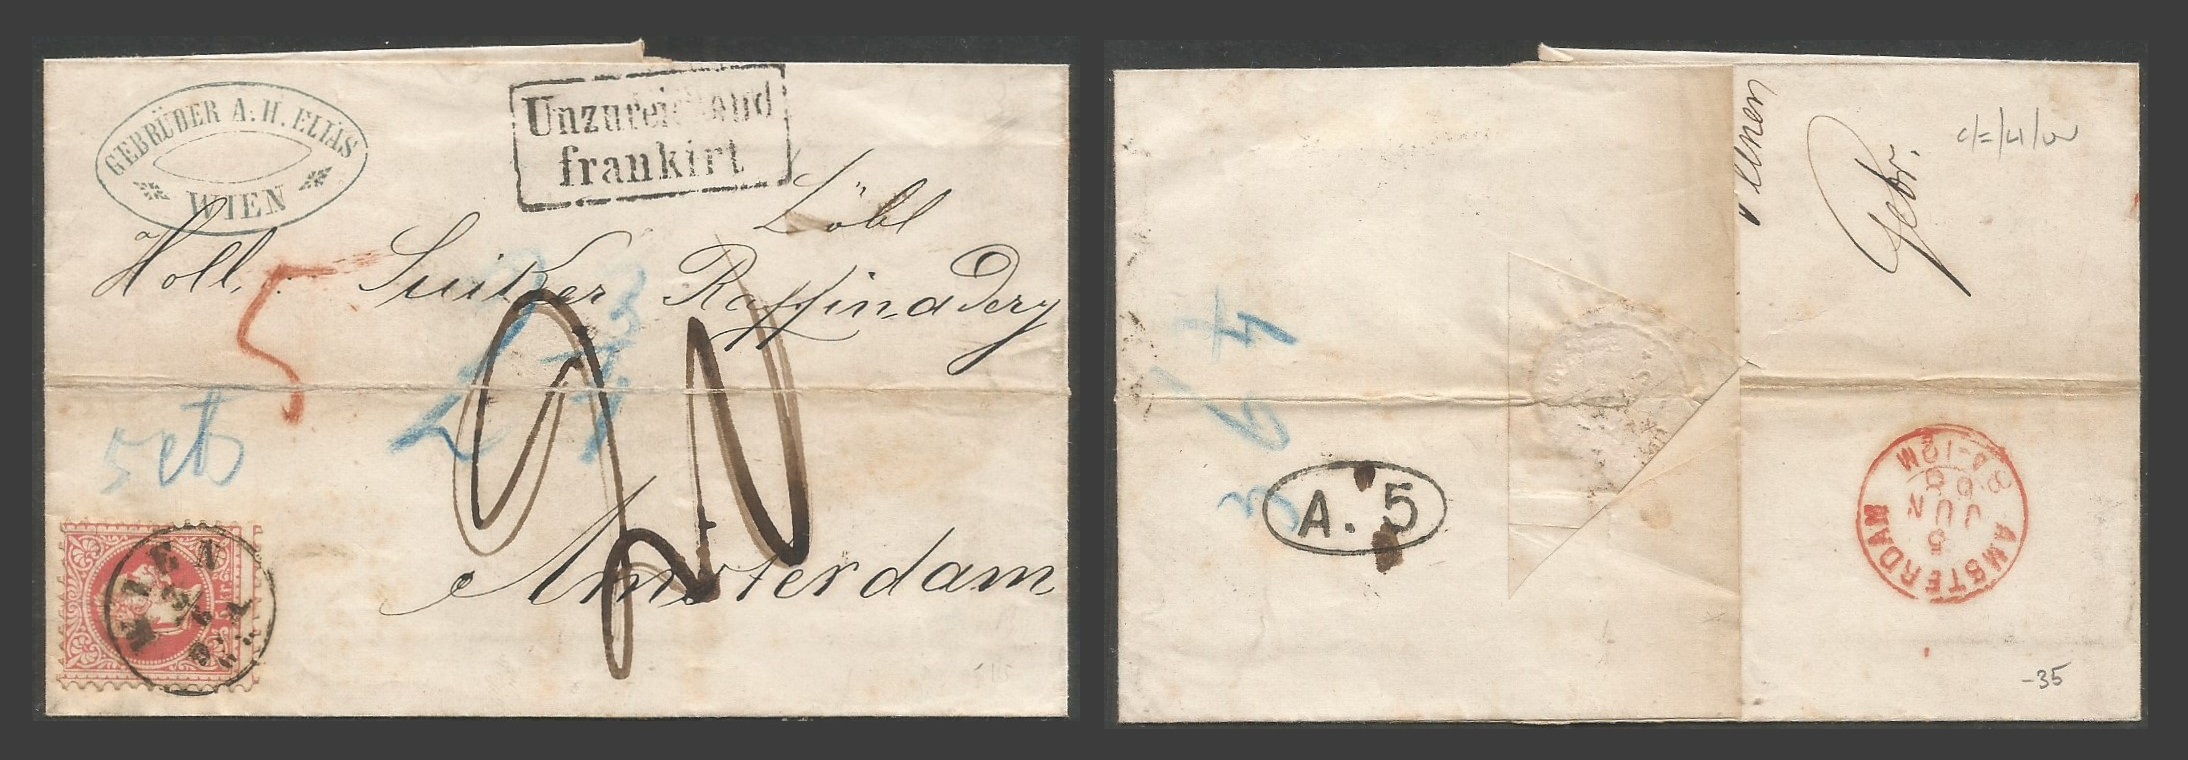 GEBRÜDER A. H. ELIAS
WIEN
Unzureichend
frankirt
Löbl
Holl. Suiker Raffinadery
5
5 cts
Amsterdam
WIEN
Gebr.
A. 5
AMSTERDAM
5
JUN
68
8A-12M
-35